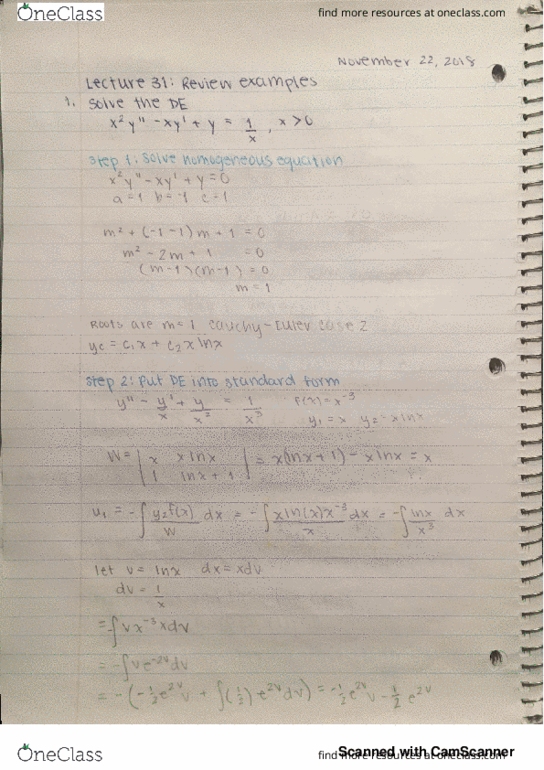 OneClass
find more resources at oneclass.com
November 22, 2018
Lecture 31: Review examples
1. Solve the DE
x²y" - xy' + y = 1/x, x>0
Step 1: Solve homogeneous equation
x²y" - xy' + y = 0
a=1 b=-1 c=1
m² + (-1-1)m + 1 = 0
m² - 2m + 1 = 0
(m-1)(m-1) = 0
m = 1
Roots are m=1 Cauchy-Euler case 2
yc = c₁x + c₂xlnx
Step 2: Put DE into standard form
y" - y'/x + y/x² = 1/x³ f(x)=x⁻³
y₁=x y₂=xlnx
W = | x xlnx | = x(lnx+1) - xlnx = x
| 1 lnx+1 |
u₁ = -∫ y₂f(x)/W dx = -∫ xln(x)x⁻³/x dx = -∫ lnx/x³ dx
let v = lnx dx=xdv
dv = 1/x
=-∫vx⁻³xdv
= -∫ve⁻²ᵛdv
OneClass
find more resources at oneclass.com
Scanned with CamScanner